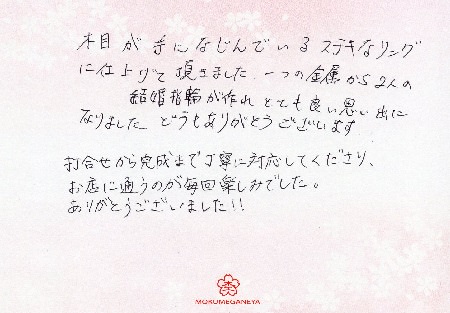 木目が手になじんでいるステキなリング
に仕上げて頂きました。一つの金属から2人の
結婚指輪が作れとても良い思い出に
なりました。どうもありがとうございます
打合せから完成まで丁寧に対応してくださり、
お店に通うのが毎回楽しみでした。
ありがとうございました!!
MOKUMEGANEYA